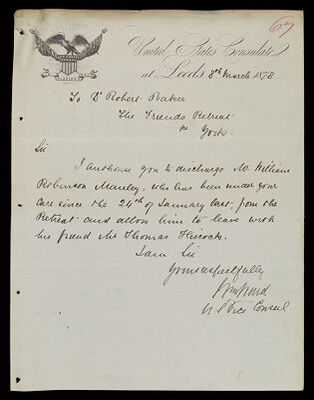 67
United States Consulate
at Leeds 8th March 1878
To Dr Robert Baker
The Friends Retreat
nr York
Sir
I authorise you to discharge Mr William
Robinson Manley, who has been under your
care since the 24th of January last, from the
Retreat and allow him to leave with
his friend Mr Thomas Hiscock.
I am Sir
Yours respectfully
U S Vice Consul